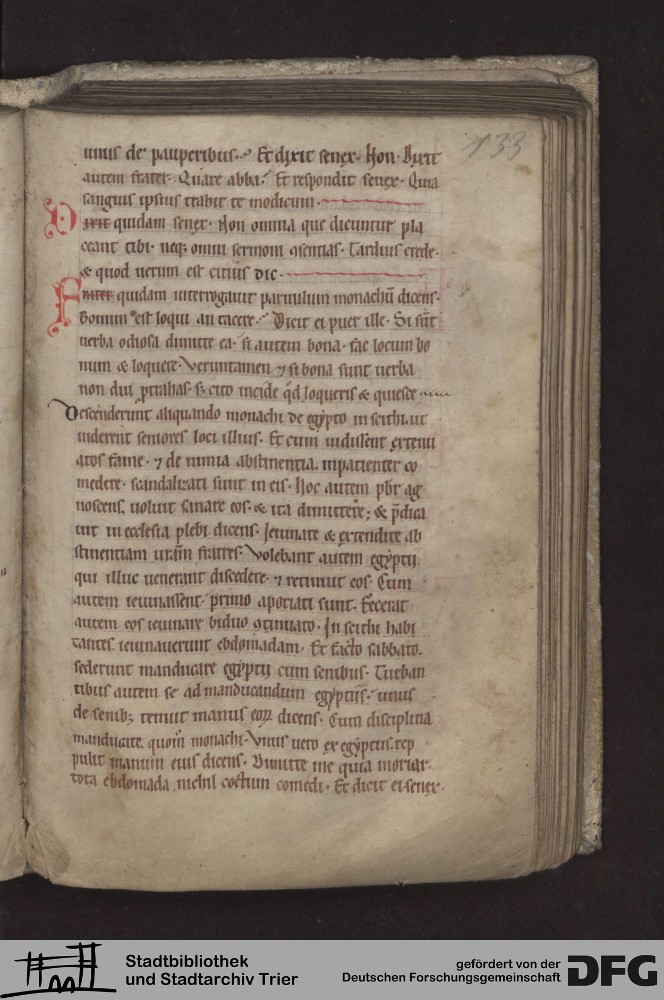 133
unus de pauperibus. Et dixit senex. Non. Dixit
autem frater. Quare abba? Et respondit senex. Quia
sanguis ipsius trahit te modicum.
Dixit quidam senex. Non omnia que dicuntur pla
ceant tibi. neq; omni sermoni ꝯsentias. Tardius crede.
& quod uerum est citius dic.
Frater quidam interrogauit paruulum monachū dicens.
Bonum est loqui an tacere? Dicit ei puer ille. Si sūt
uerba odiosa dimitte ea. si autem bona. fac locum bo
num & loquere. Veruntamen ⁊ si bona sunt uerba
non diu ꝓtrahas. s; cito incide qd loqueris & quiesce.
Descenderunt aliquando monachi de egypto in scithi. ut
uiderent seniores loci illius. Et cum uidissent extenu
atos fame. ⁊ de nimia abstinentia. inpatienter co
medere. scandalizati sunt in eis. Hoc autem pbr ag
noscens, uoluit sanare eos. & ita dimittere; & p̄dica
uit in ecclesia plebi dicens. Ieiunate & extendite ab
stinentiam ur̄am fratres. Volebant autem egyptii
qui illuc uenerant discedere. ⁊ retinuit eos. Cum
autem ieiunassent. primo aporiati sunt. Fecerat
autem eos ieiunare biduo ꝯtinuato. In scithi habi
tantes. ieiunauerunt ebdomadam. Et facto sabbato.
sederunt manducare egyptii cum senibus. Turban
tibus autem se ad manducandum egyptiis. unus
de senib; tenuit manus eoꝝ dicens. Cum disciplina
manducate. quom̄ monachi. Vnus uero ex egyptiis. rep
pulit manum eius dicens. Dimitte me quia morior.
tota ebdomada nichil coctum comedi. Et dicit ei senex.
Stadtbibliothek
und Stadtarchiv Trier
gefördert von der
Deutschen Forschungsgemeinschaft
DFG